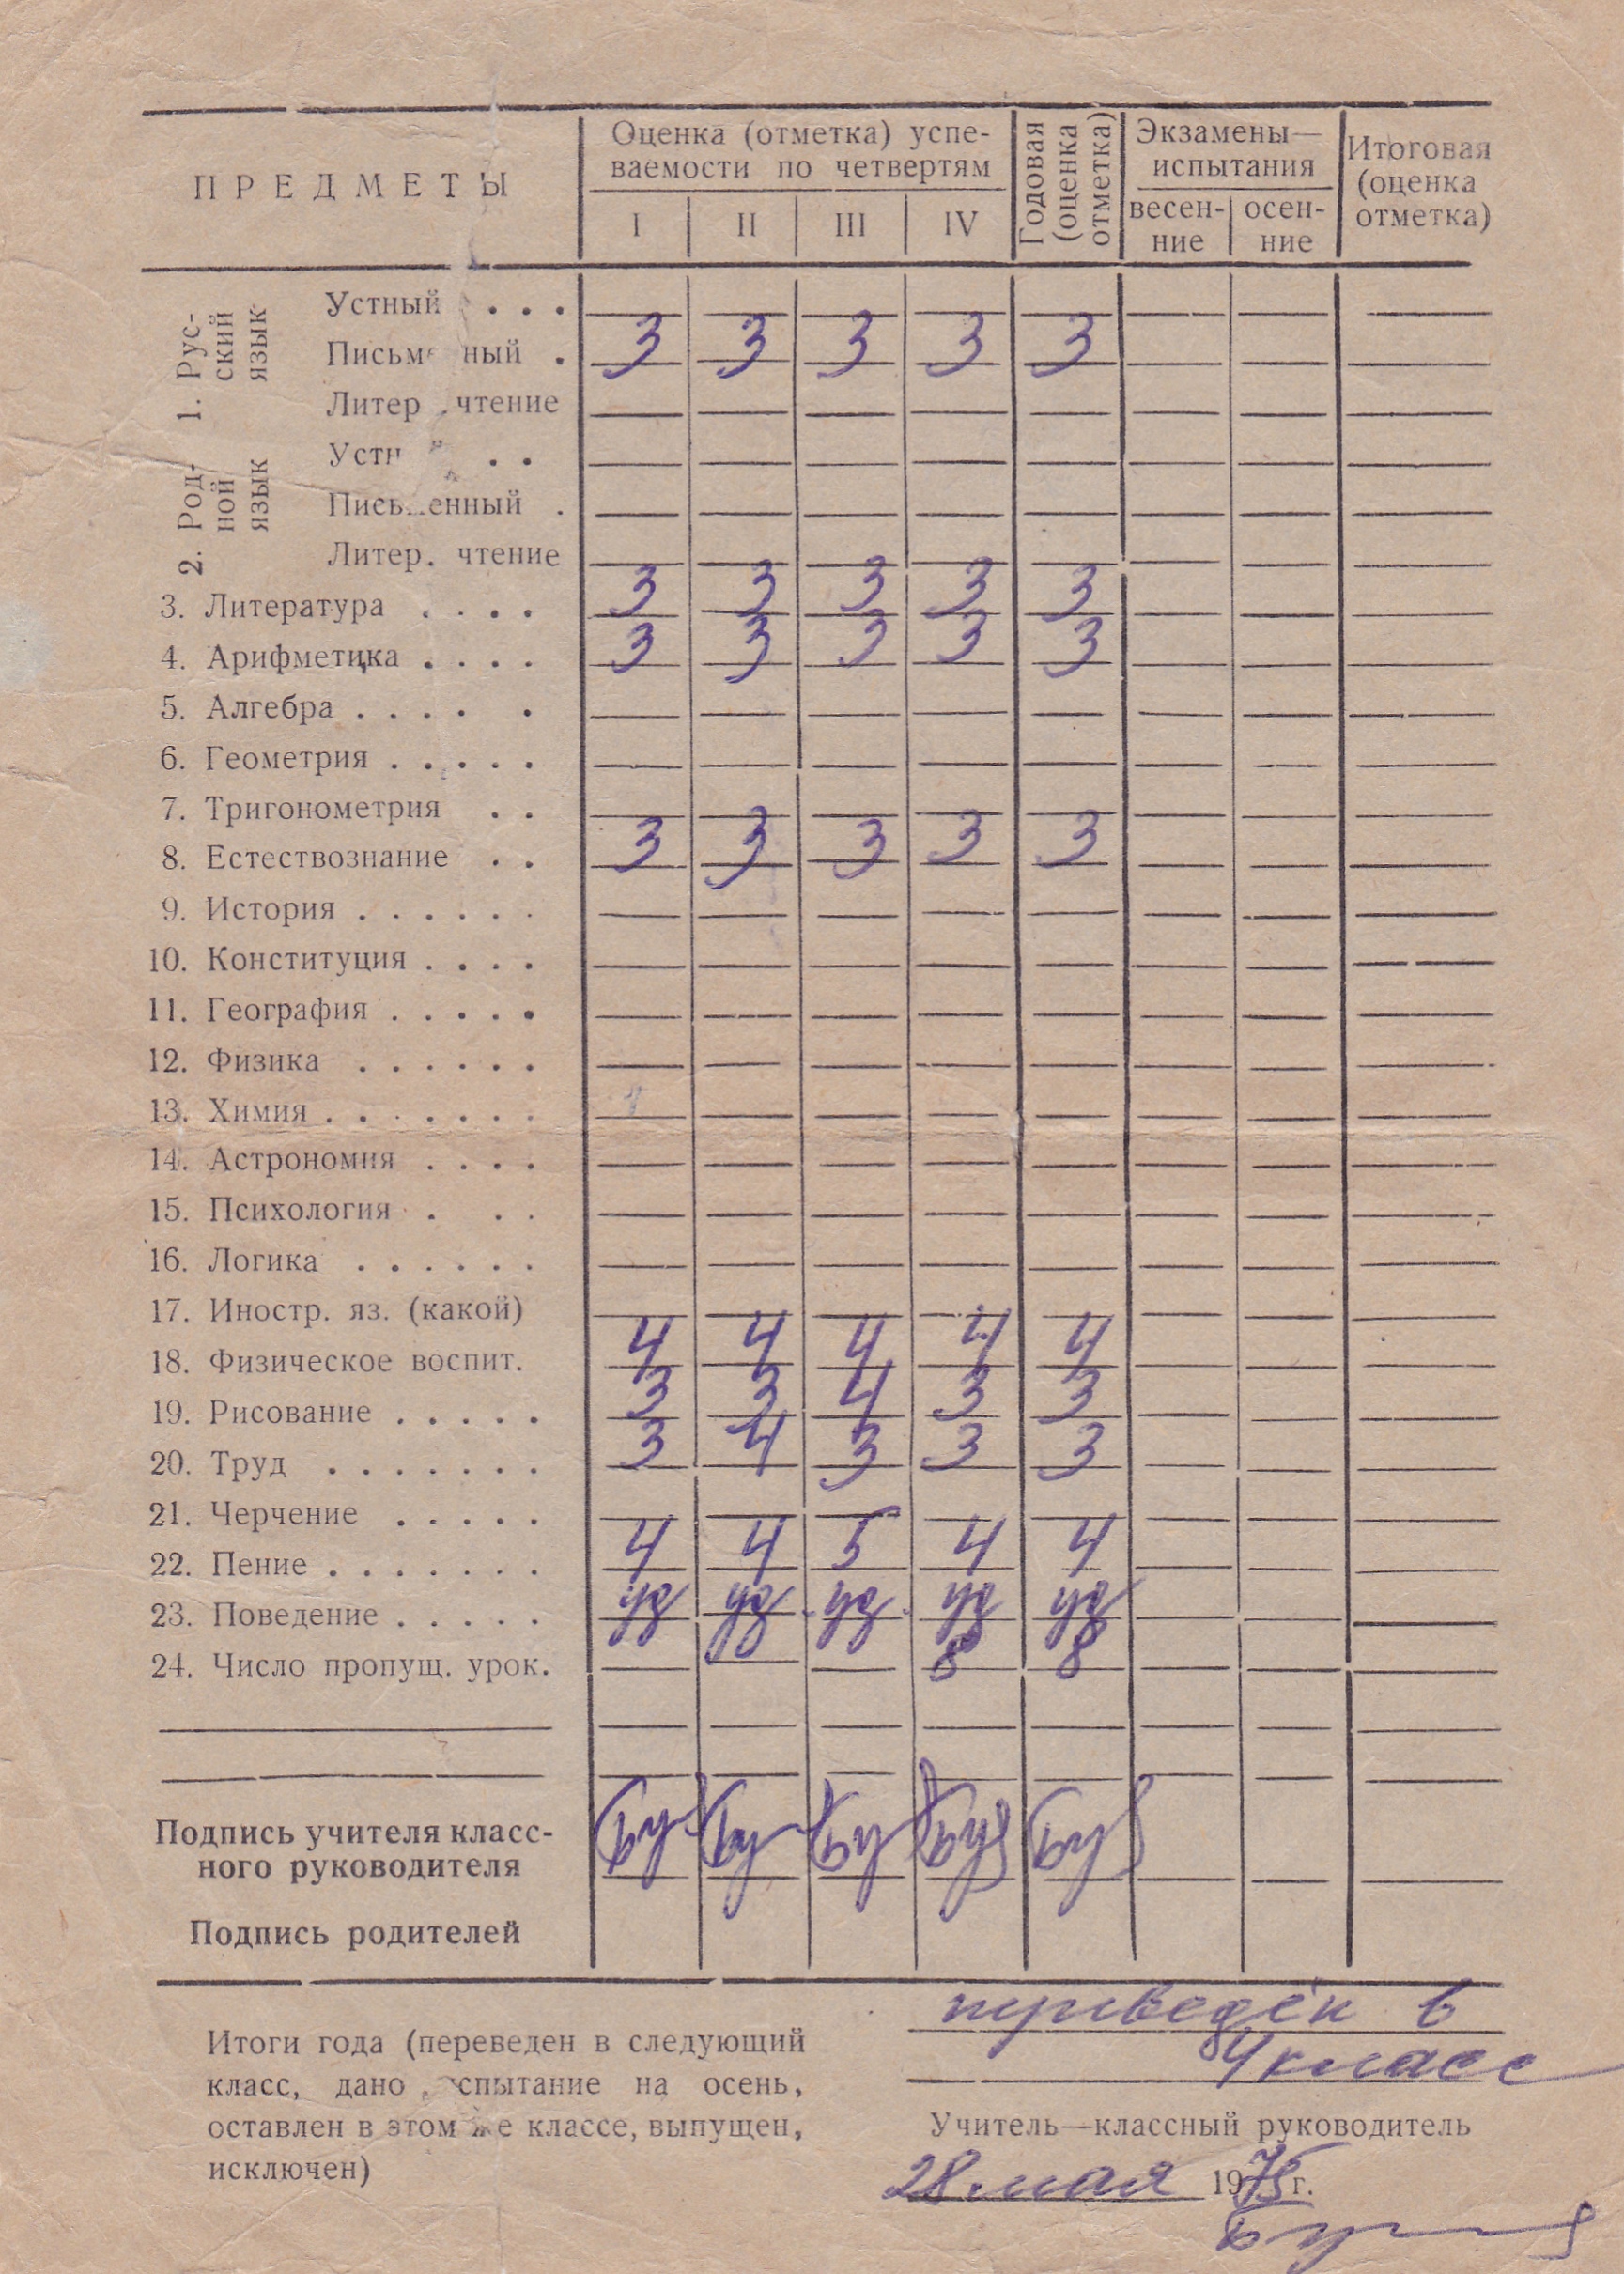 ПРЕДМЕТЫ
Оценка (отметка) успе-
ваемости по четвертям
I II III IV
Годовая
(оценка
отметка)
Экзамены—
испытания
весен-
ние
осен-
ние
Итоговая
(оценка
отметка)
1. Рус-
ский
язык
Устный . . .
Письменный . 3 3 3 3 3
Литер. чтение
2. Род-
ной
язык
Устный . .
Письменный .
Литер. чтение
3. Литература . . . . 3 3 3 3 3
4. Арифметика . . . . 3 3 3 3 3
5. Алгебра . . . . .
6. Геометрия . . . . .
7. Тригонометрия . .
8. Естествознание . . 3 3 3 3 3
9. История . . . . . .
10. Конституция . . . .
11. География . . . . .
12. Физика . . . . . .
13. Химия . . . . . . .
14. Астрономия . . . .
15. Психология . . .
16. Логика . . . . . .
17. Иностр. яз. (какой)
18. Физическое воспит. 4 4 4 4 4
19. Рисование . . . . . 3 3 4 3 3
20. Труд . . . . . . . 3 4 3 3 3
21. Черчение . . . . .
22. Пение . . . . . . . 4 4 5 4 4
23. Поведение . . . . . уд уд уд уд уд
24. Число пропущ. урок. 8 8
Подпись учителя класс-
ного руководителя
Подпись родителей
Итоги года (переведен в следующий
класс, дано испытание на осень,
оставлен в этом же классе, выпущен,
исключен)
переведён в
4 класс
Учитель—классный руководитель
28 мая 1975 г.